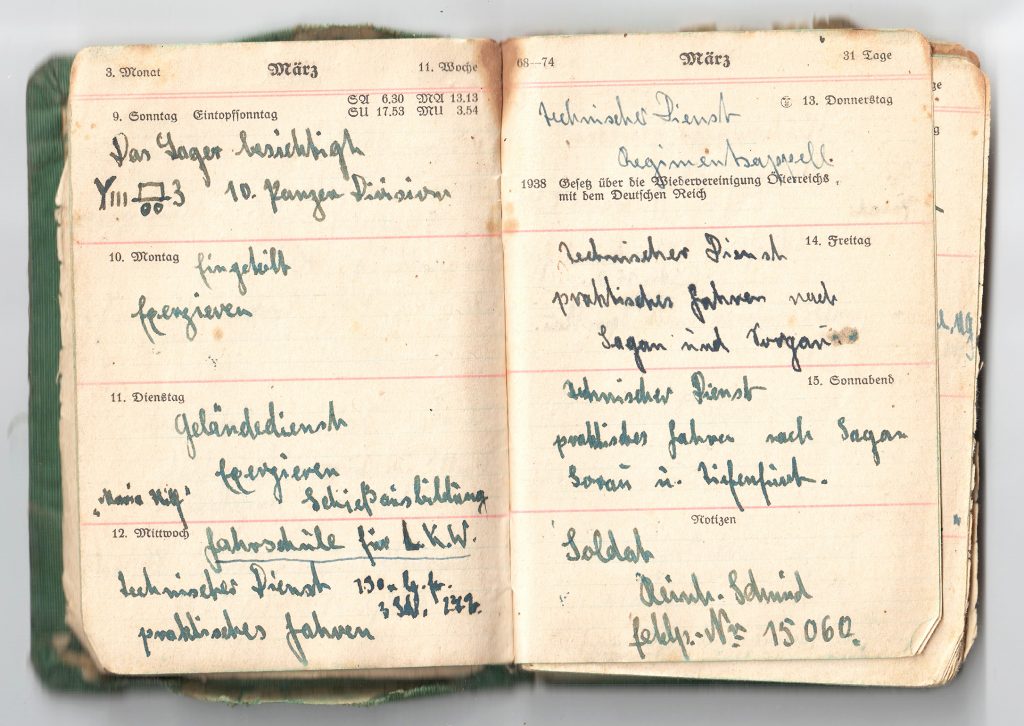 3. Monat März 11. Woche
9. Sonntag Eintopfsonntag SA 6.30 MA 13.13
SU 17.53 MU 3.54
Das Lager besichtigt
3 10. Panzer Division
10. Montag Eingeteilt
Exerzieren
11. Dienstag
Geländedienst
Exerzieren
"Maria Hilf" Schießausbildung
12. Mittwoch Fahrschule für L.K.W.
technischer Dienst
praktisches Fahren
68—74 März 31 Tage
13. Donnerstag
technischer Dienst
Regimentsappell.
1938 Gesetz über die Wiedervereinigung Österreichs
mit dem Deutschen Reich
14. Freitag
technischer Dienst
praktisches Fahren nach
Sagan und Sorau
15. Sonnabend
technischer Dienst
praktisches Fahren nach Sagan
Sorau u. Tiefenfurt.
Notizen
Soldat
Schmid
Feldp.-Nr. 15060.